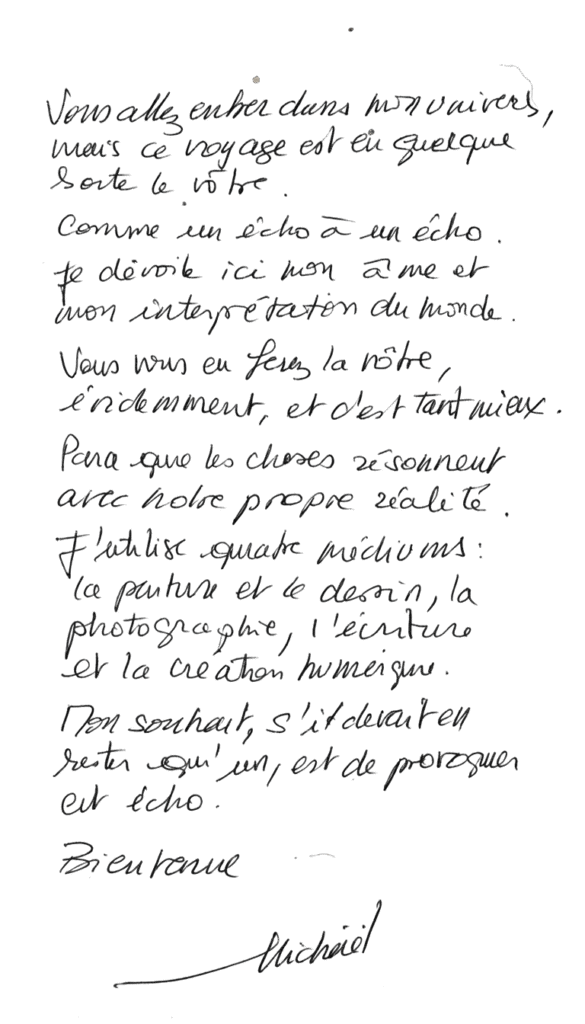 Vous allez entrer dans mon univers,
mais ce voyage est en quelque
sorte le vôtre.
Comme un écho à un écho.
Je dévoile ici mon âme et
mon interprétation du monde.
Vous vous en ferez la vôtre,
évidemment, et c'est tant mieux.
Para que les choses résonnent
avec notre propre réalité.
J'utilise quatre médiums :
la peinture et le dessin, la
photographie, l'écriture
et la création numérique.
Mon souhait, s'il devait en
rester qu'un, est de provoquer
cet écho.
Bienvenue
Michaël